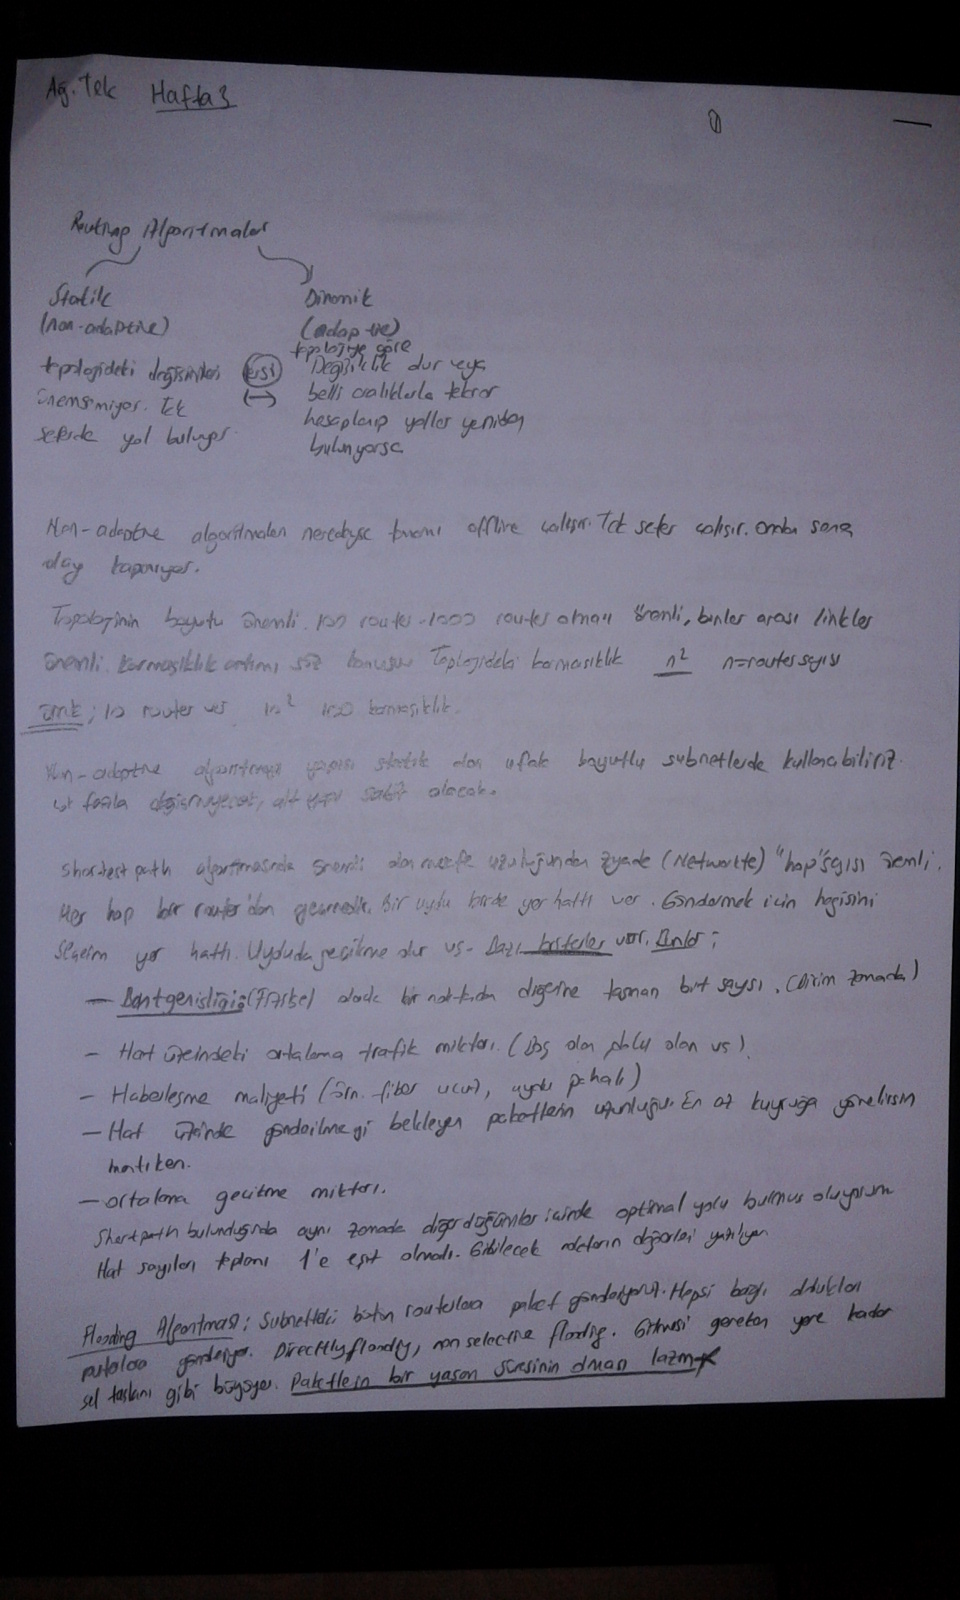 Ağ. Tek Hafta 3
Routing Algoritmaları
Statik Dinamik
(non-adaptive) (adaptive)
topolojiye göre
topolojideki değişimleri Değişiklik olur veya
önemsemiyor. Tek belli aralıklarla tekrar
seferde yol buluyor. hesaplanıp yollar yeniden
bulunuyorsa
Non-adaptive algoritmaları neredeyse tamamı offline çalışır. Tek sefer çalışır. ondan sonra
olay kapanıyor.
Topolojinin boyutu önemli. 100 router-1000 router olması önemli, bunlar arası linkler
önemli. Karmaşıklık artımı söz konusu Toplojideki karmaşıklık n² n=router sayısı
örnk; 10 router var 10² 100 karmaşıklık.
Non-adaptive algoritmayı yapısı statik olan ufak boyutlu subnetlerde kullanabiliriz.
fazla değişmeyecek, alt yapı sabit olacak.
shortest path algoritmasında önemli olan mesafe uzunluğundan ziyade (Networkte) "hop" sayısı önemli.
Her hop bir router'dan geçmektir. Bir uydu birde yer hattı var. Göndermek için hangisini
seçelim yer hattı. Uyduda gecikme olur vs. Bazı kriterler var. Bunlar;
— Bantgenişliği: (Fiziksel) olarak bir noktadan diğerine taşınan bit sayısı. (Birim zamanda)
- Hat üzerindeki ortalama trafik miktarı. (Boş olan dolu olan vs).
- Haberleşme maliyeti (Örn. fiber ucuz, uydu pahalı)
- Hat üzerinde gönderilmeyi bekleyen paketlerin uzunluğu. En az kuyruğa yönelirsin
mantıken.
- ortalama gecikme miktarı.
Short path bulunduğunda aynı zamanda diğer düğümler içinde optimal yolu bulmuş oluyorum
Hat sayıları toplamı 1'e eşit olmalı. Gidilecek noktaların değerleri yazılıyor.
Flooding Algoritması: Subnetteki bütün routerlara paket gönderiyoruz. Hepsi bağlı oldukları
gönderiyor. Directly flooding, non selective flooding. Gitmesi gereken yere kadar
sel taşkını gibi büyüyor. Paketlerin bir yaşam süresinin olması lazım